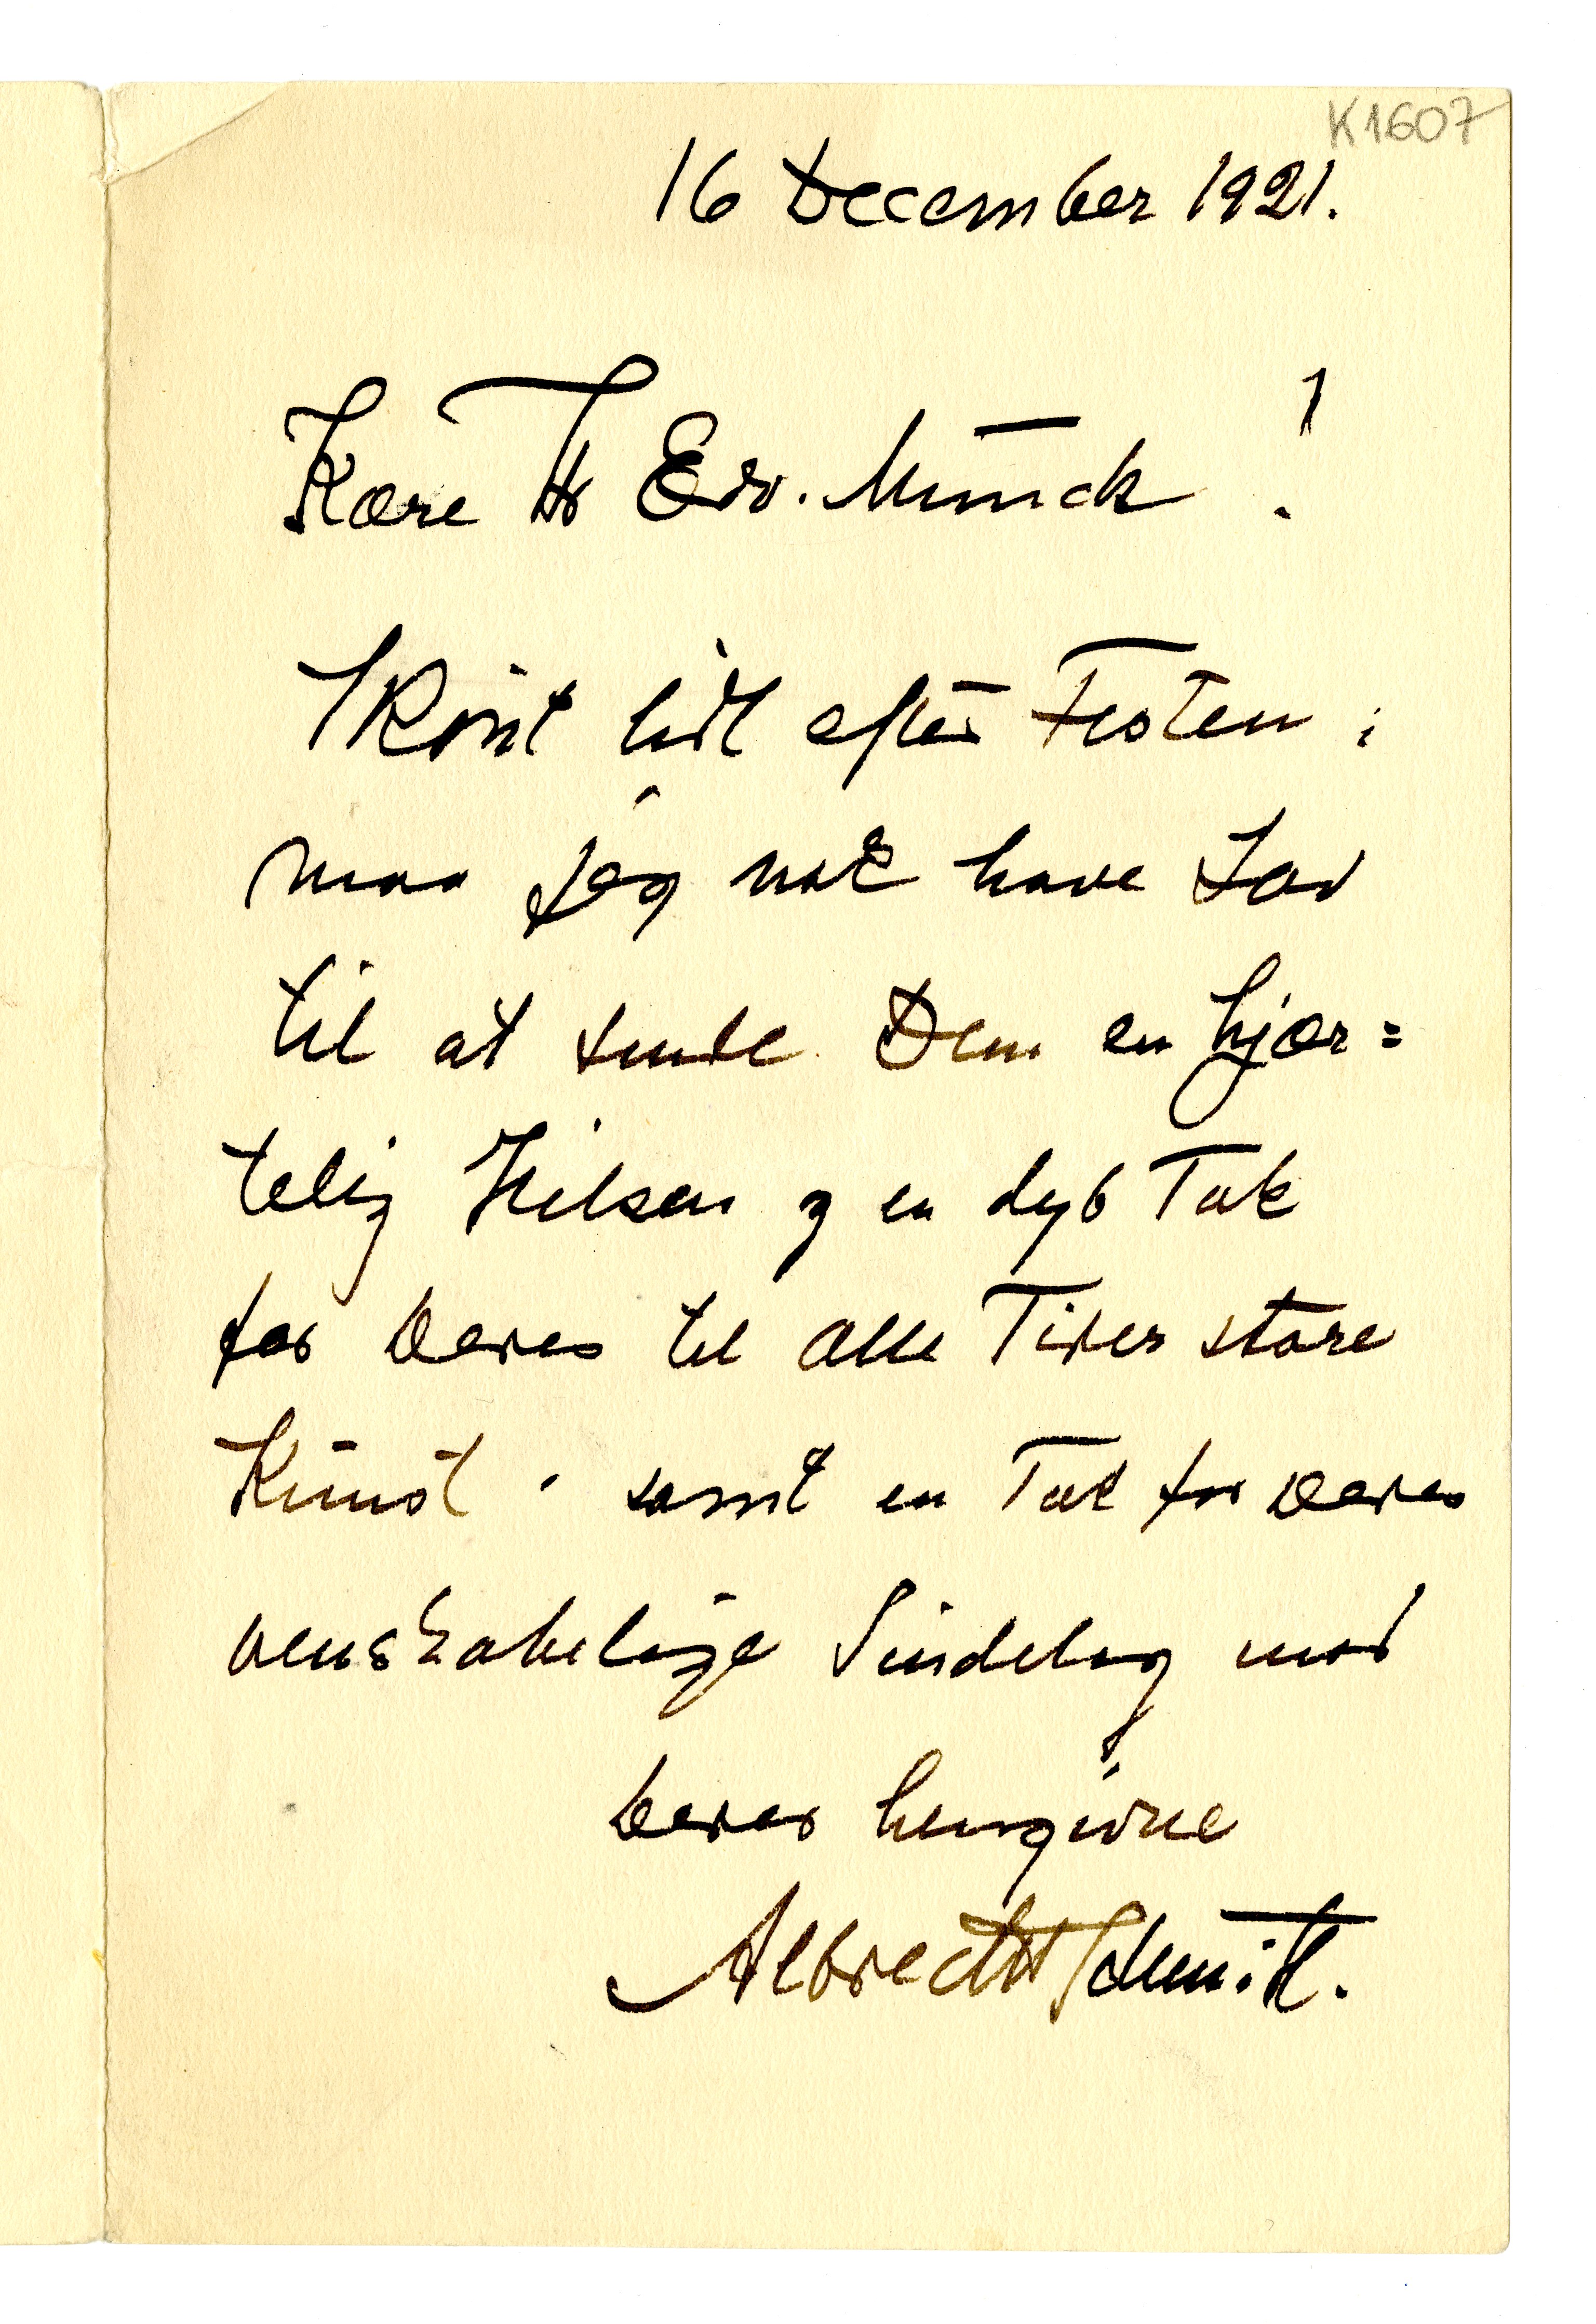 K1607
16 December 1921.
Kære Hr Edv. Munch !
Skönt lidt efter Festen ;
maa jeg nok have Lov
til at sende Dem en hjær=
telig Hilsen og en dyb Tak
for Deres til alle Tider store
Kunst , samt en Tak for Deres
venskabelige Sindelag mod
Deres hengivne
Albrecht Schmidt.